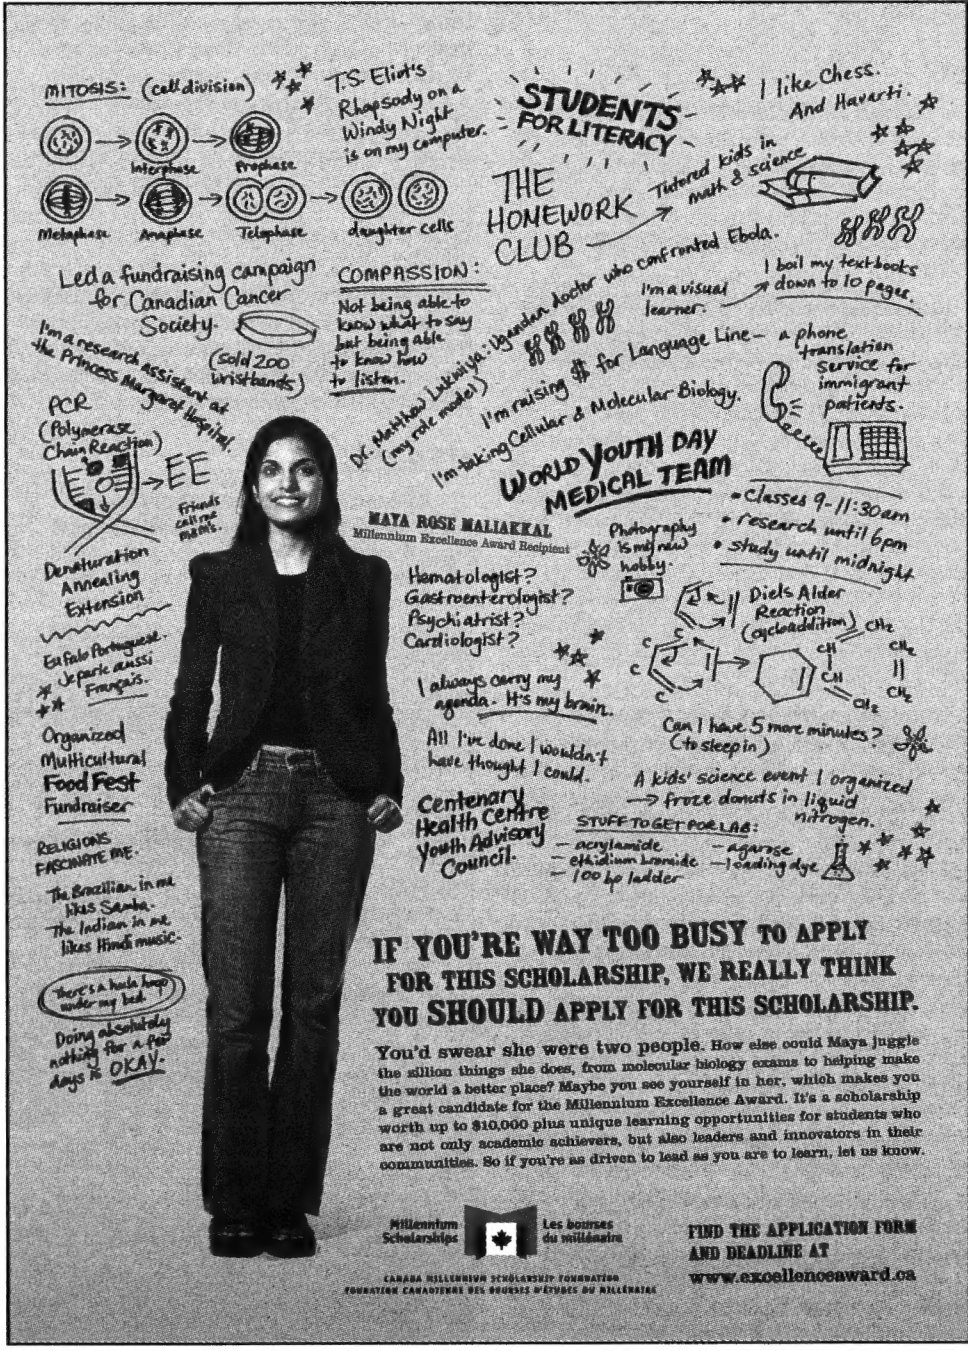 MITOSIS: (cell division)
Interphase
Prophase
Metaphase
Anaphase
Telophase
daughter cells
T.S. Eliot's
Rhapsody on a
Windy Night
is on my computer.
STUDENTS
FOR LITERACY
I like Chess.
And Havarti.
THE
HOMEWORK
CLUB
Tutored kids in
math & science
Led a fundraising campaign
for Canadian Cancer
Society.
(sold 200
wristbands)
COMPASSION:
Not being able to
know what to say
but being able
to know how
to listen.
Dr. Matthew Lukwiya: Ugandan doctor who confronted Ebola.
(my role model)
I'm a visual
learner.
I boil my textbooks
down to 10 pages.
I'm a research assistant at
the Princess Margaret Hospital.
I'm raising $ for Language Line - a phone
translation
service for
immigrant
patients.
I'm taking Cellular & Molecular Biology.
PCR
(Polymerase
Chain Reaction)
EE
Friends
call me
Denaturation
Annealing
Extension
WORLD YOUTH DAY
MEDICAL TEAM
• classes 9-11:30am
• research until 6pm
• study until midnight
MAYA ROSE MALIAKKAL
Millennium Excellence Award Recipient
Photography
is my new
hobby.
Hematologist?
Gastroenterologist?
Psychiatrist?
Cardiologist?
Diels Alder
Reaction
(cycloaddition)
C
C
C
C
CH2
CH
CH
CH2
CH2
CH2
Eu falo Portuguese.
Je parle aussi
Français.
I always carry my
agenda. It's my brain.
Can I have 5 more minutes?
(to sleep in)
Organized
Multicultural
Food Fest
Fundraiser
All I've done I wouldn't
have thought I could.
A kids' science event I organized
→ froze donuts in liquid
nitrogen.
Centenary
Health Centre
Youth Advisory
Council.
STUFF TO GET FOR LAB:
- acrylamide
- ethidium bromide
- 100 bp ladder
- agarose
- loading dye
RELIGIONS
FASCINATE ME.
The Brazilian in me
likes Samba.
The Indian in me
likes Hindi music.
There's a hula hoop
under my bed
Doing absolutely
nothing for a few
days is OKAY.
IF YOU'RE WAY TOO BUSY TO APPLY
FOR THIS SCHOLARSHIP, WE REALLY THINK
YOU SHOULD APPLY FOR THIS SCHOLARSHIP.
You'd swear she were two people. How else could Maya juggle
the zillion things she does, from molecular biology exams to helping make
the world a better place? Maybe you see yourself in her, which makes you
a great candidate for the Millennium Excellence Award. It's a scholarship
worth up to $10,000 plus unique learning opportunities for students who
are not only academic achievers, but also leaders and innovators in their
communities. So if you're as driven to lead as you are to learn, let us know.
Millennium
Scholarships
Les bourses
du millénaire
CANADA MILLENNIUM SCHOLARSHIP FOUNDATION
FONDATION CANADIENNE DES BOURSES D'ÉTUDES DU MILLÉNAIRE
FIND THE APPLICATION FORM
AND DEADLINE AT
www.excellenceaward.ca